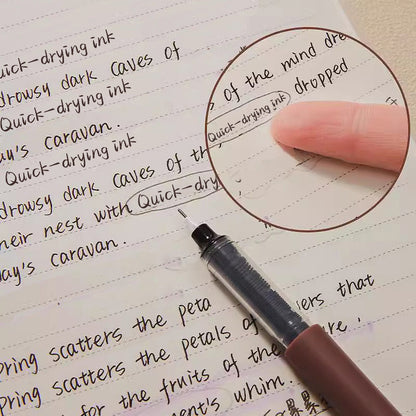 Quick-drying ink
drowsy dark caves of
Quick-drying ink
ay's caravan.
Quick-drying ink
drowsy dark caves of th
Quick-dry
heir nest with
ay's caravan.
of the mind dre
dropped
Quick-drying ink
pring scatters the peta
ers that
pring scatters the petals of
for the fruits of the
ment's whim.